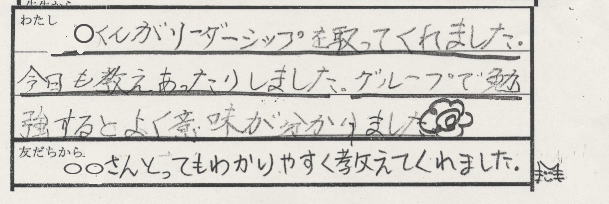 わたし
○くんがリーダーシップを取ってくれました。
今日も教えあったりしました。グループで勉
強するとよく意味が分かりました
友だちから
○○さんとってもわかりやすく教えてくれました。